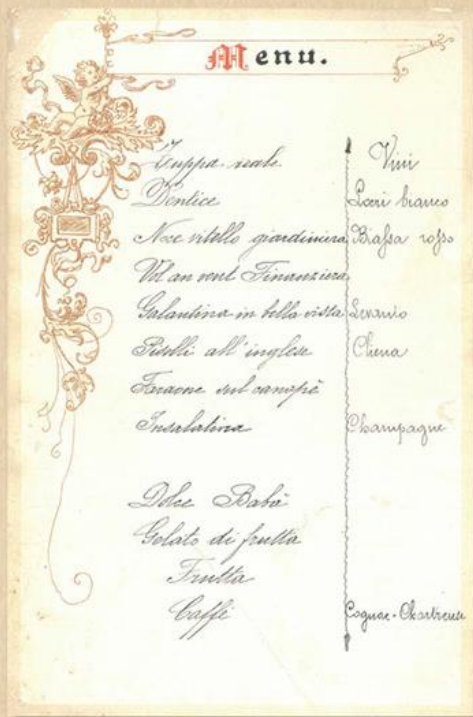 Menu.
Zuppa reale
Dentice
Noce vitello giardiniera
Vol au vent Finanziera
Galantina in bella vista
Piselli all'inglese
Faraone sul canapè
Insalatina
Dolce Babà
Gelato di frutta
Frutta
Caffè
Vini
bianco
Biassa rosso
Levanto
Champagne
Cognac - Chartreuse